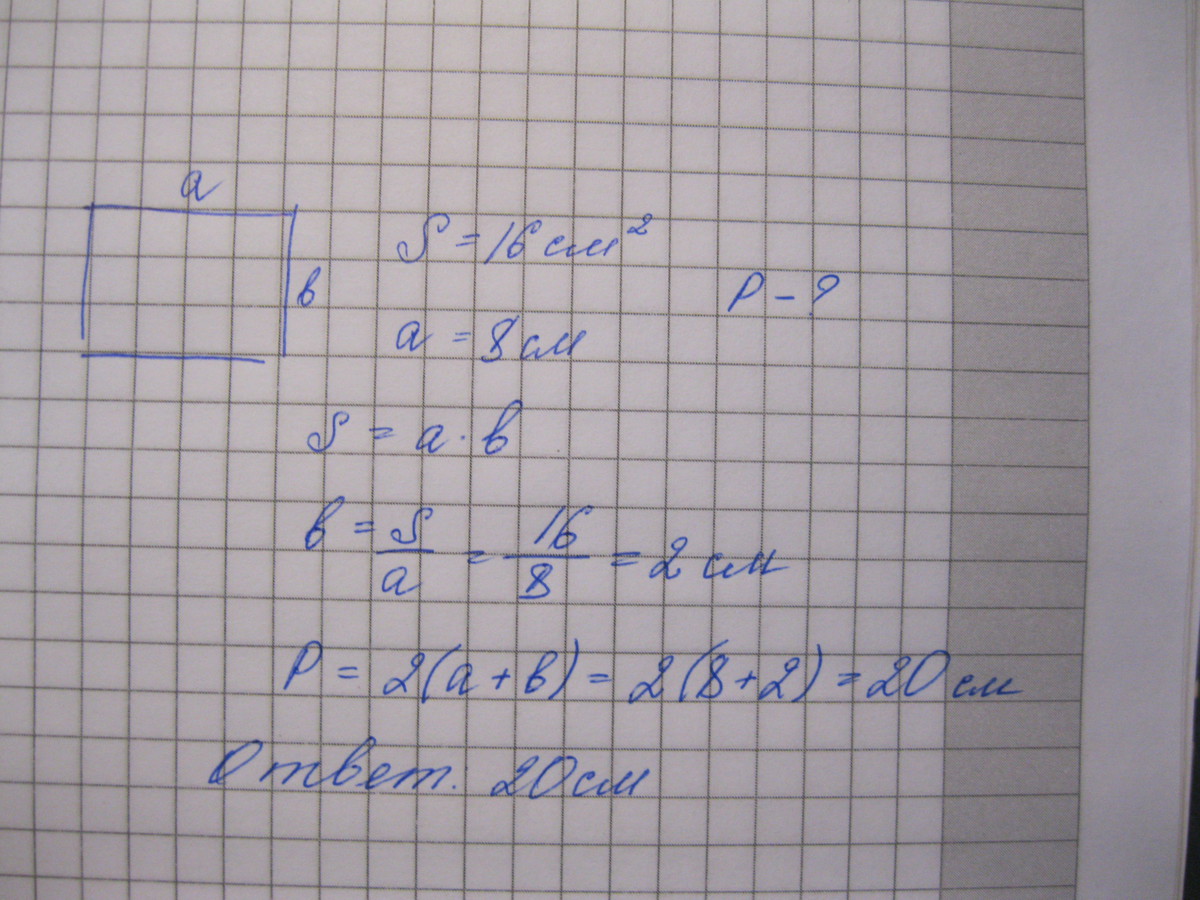 a
в
S = 16 см²
P - ?
a = 8 см
S = a · в
в = S/a = 16/8 = 2 см
P = 2(a + в) = 2(8+2) = 20 см
Ответ: 20 см